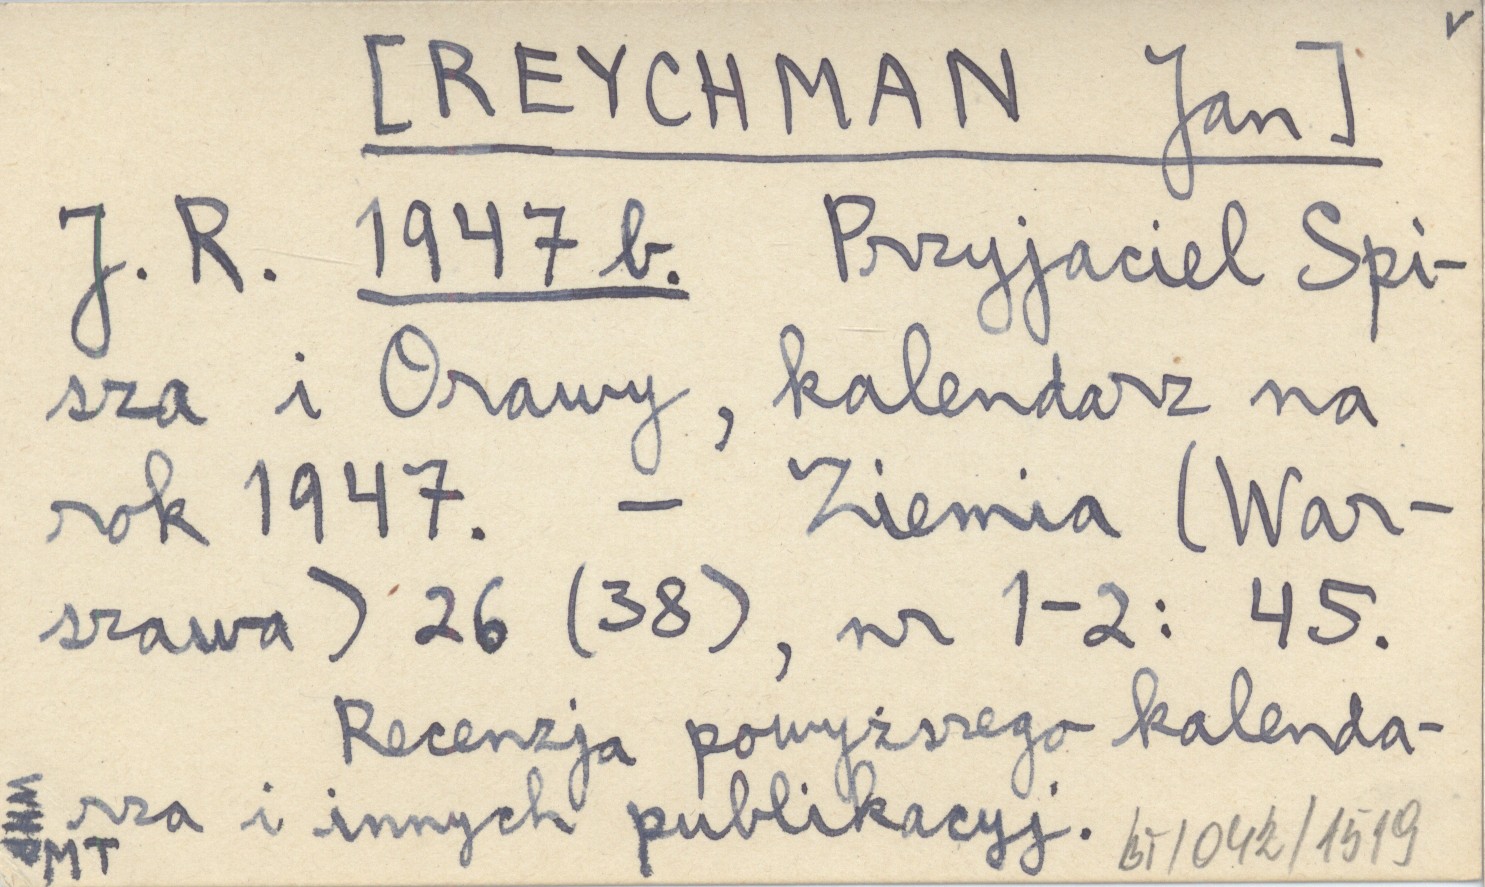 v
[REYCHMAN Jan]
J. R. 1947 b. Przyjaciel Spi-
sza i Orawy, kalendarz na
rok 1947. – Ziemia (War-
szawa) 26 (38), nr 1-2: 45.
Recenzja powyższego kalenda-
rza i innych publikacyj.
MT /042/1519